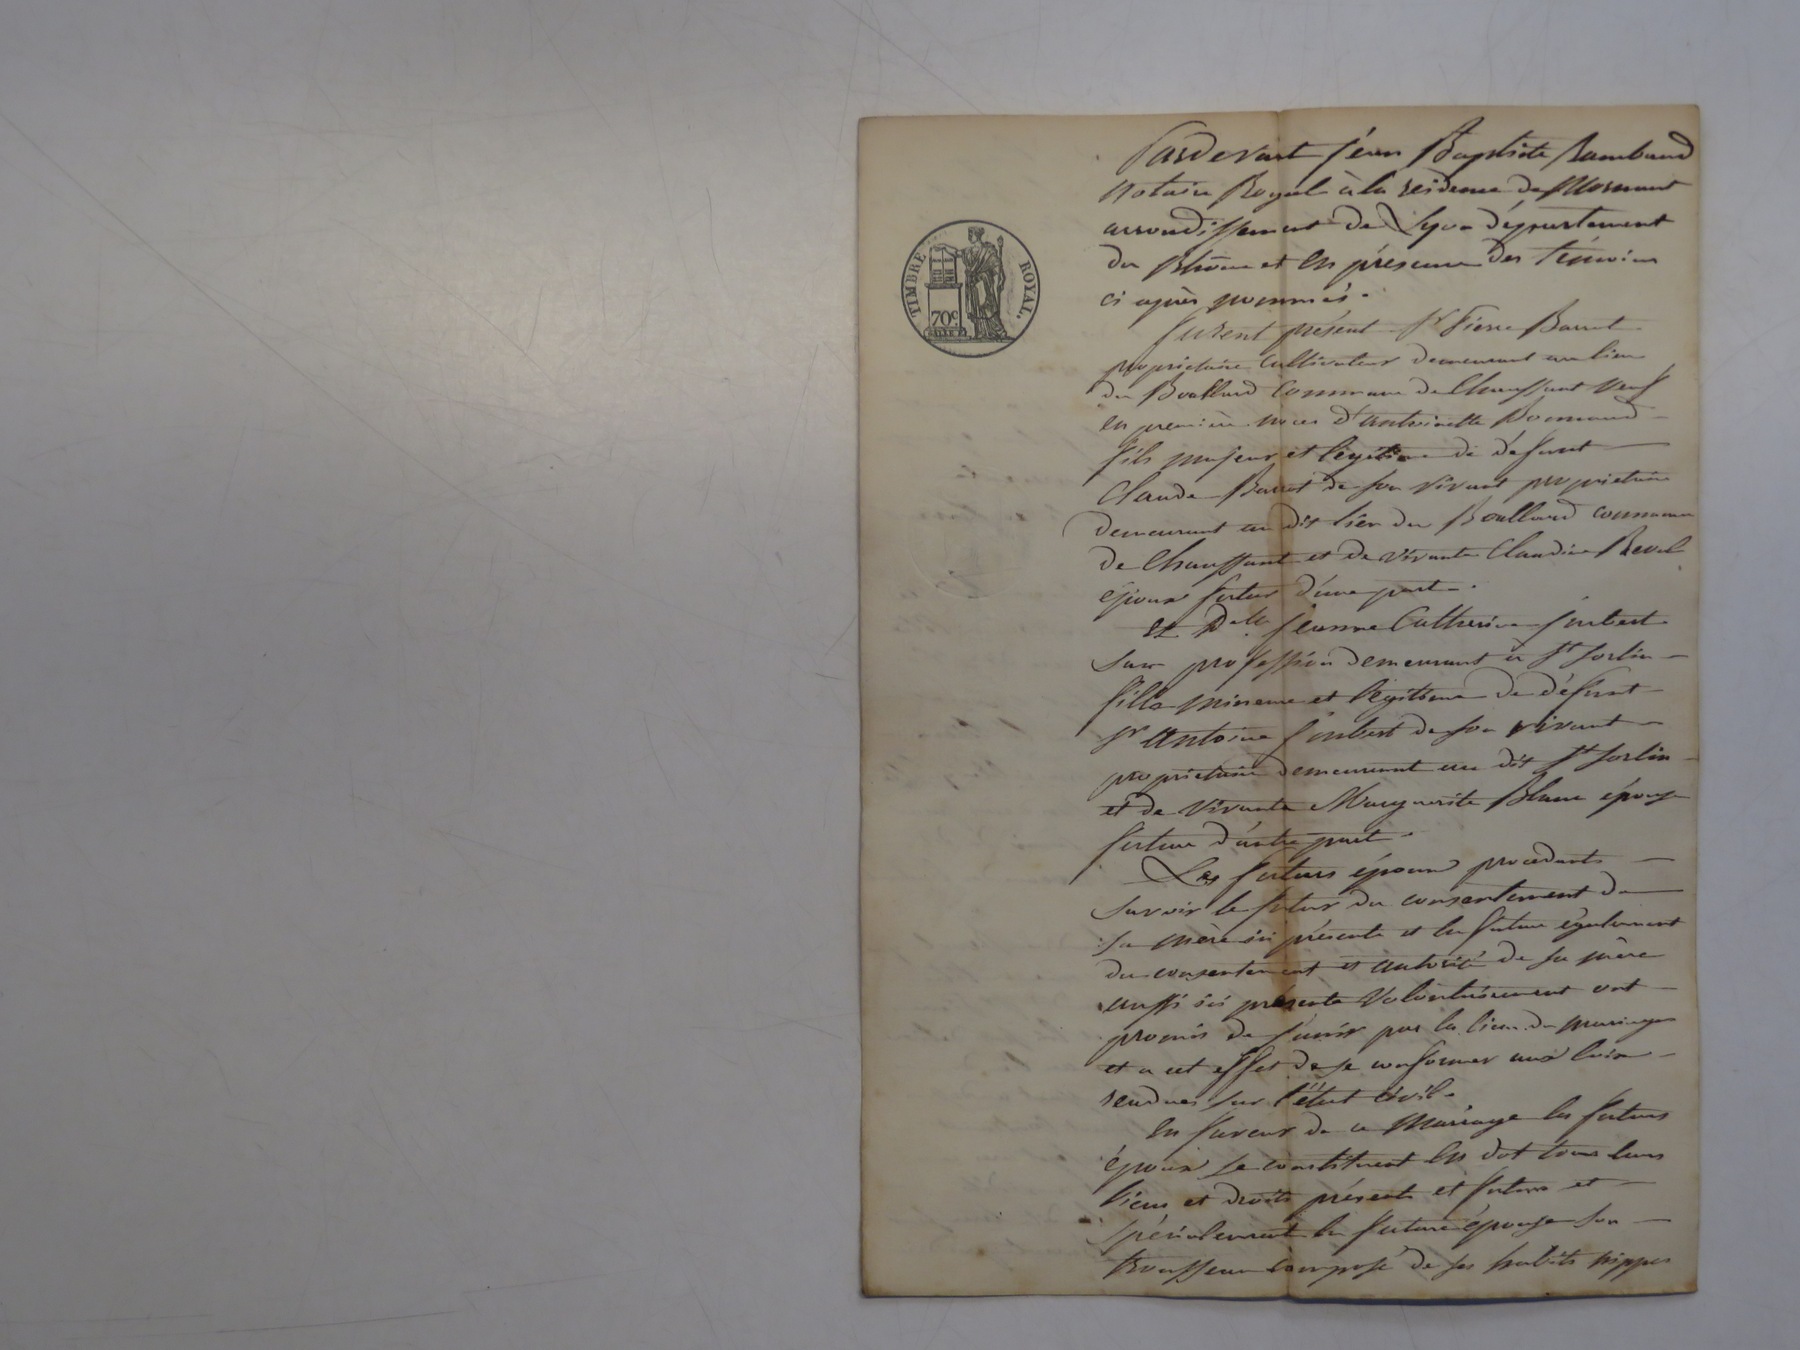 TIMBRE ROYAL.
70c
Pardevant Jéan Baptiste Rambaud
Notaire Royal à la résidence de Mornant
arrondissement de Lyon département
du Rhône et en présence des témoins
ci après nommés.
furent présent Sr Pierre Barret
propriétaire cultivateur demeurant au lieu
du Boullard commune de Chaussant veuf
en première noces d'antoinette Bonnand
fils majeur et légitime de défunt
Claude Barret de son vivant propriétaire
demeurant au dit lieu du Boullard commune
de Chaussant et de vivante Claudine Revel
époux futur d'une part.
Et Delle Jeanne Catherine Joubert
sans profession demeurant à St Sorlin
fille mineure et légitime de défunt
Sr Antoine Joubert de son vivant
propriétaire demeurant au dit St Sorlin
et de vivante Marguerite Blanc épouse
future d'autre part.
Les futurs époux procédants
savoir le futur du consentement de
sa mère ici présente et la future également
du consentement et autorité de sa mère
aussi ici présente volontairement ont
promis de s'unir par les liens du mariage
et a cet effet de se conformer aux lois
rendues sur l'état civil.
En faveur de ce mariage les futurs
époux se constituent en dot tous leurs
biens et droits présents et futurs et
spécialement la future épouse son
trousseau composé de ses habits nippes